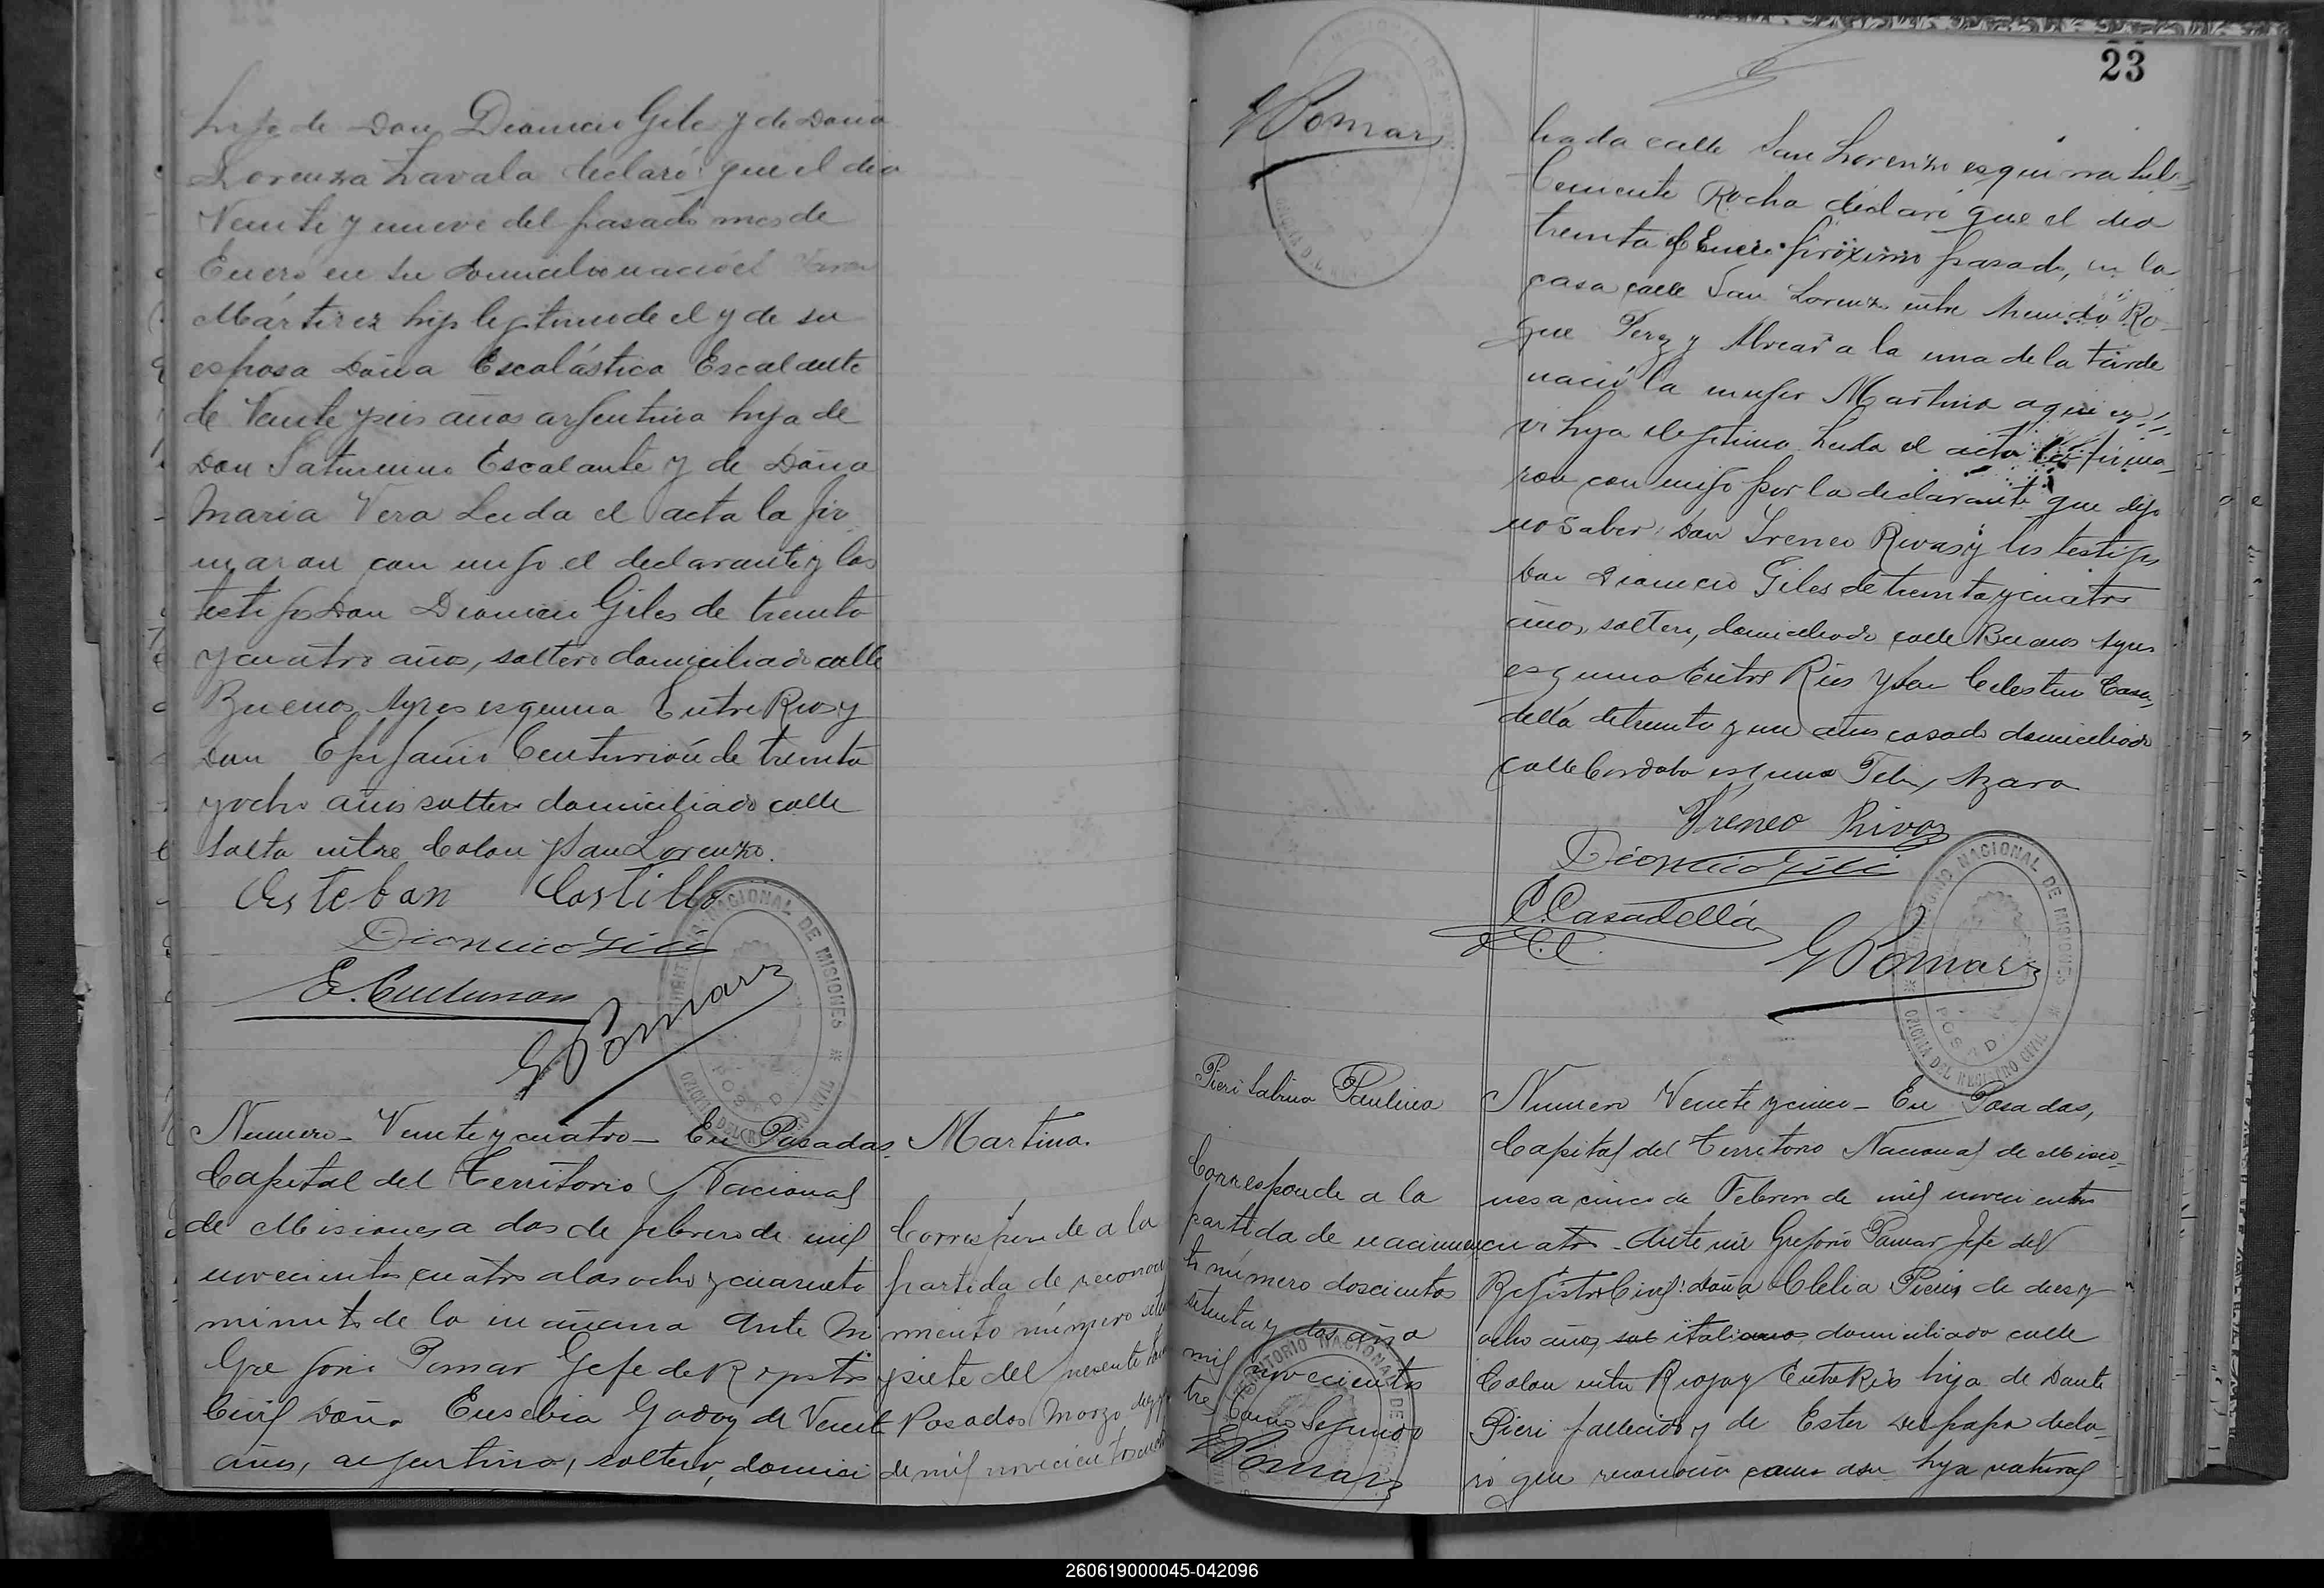 hijo de Don Dionicio Gile y de Doña
Lorenza Zavala declaró que el dia
Veinte y nueve del pasado mes de
Enero en su domicilio nació el Varon
Mártires hijo legitimo de el y de su
esposa Doña Escolástica Escalante
de Veinte y seis años argentina hija de
Don Saturnino Escalante y de Doña
Maria Vera Leida el acta la fir
maron con migo el declarante y los
testigos Don Dionicio Giles de treinta
y cuatro años, soltero domiciliado calle
Buenos Ayres esquina Entre Rios y
Don Epifanio Centurión de treinta
y ocho años soltero domiciliado calle
Salta entre Colon y San Lorenzo.
Esteban Castillo
Dionicio Gili
E. Centurion
G Pomar
Numero Veinte y cuatro - En Posadas
Capital del Territorio Nacional
de Misiones a dos de febrero de mil
novecientos cuatro a las ocho y cuarenta
minutos de la mañana Ante Mi
Gregorio Pomar Gefe de Registro
Civil Doña Eusebia Godoy de Veinte
años, argentina, soltera, domici
Martina.
Corresponde a la
partida de reconoci
miento número
y siete del presente
Posadas Marzo
de mil novecientos
TERRITORIO NACIONAL DE MISIONES
OFICINA DEL REGISTRO CIVIL
POSADAS
23
G Pomar
liada calle San Lorenzo esquina
Teniente Rocha declaró que el dia
treinta de Enero próximo pasado, en la
casa calle San Lorenzo entre Avenida Ro
que Perez y Alvear a la una de la tarde
nació la mujer Martina
hija ilegitima Leida el acta la firma
ron con migo por la declarante que dijo
no saber, Don Ireneo Rivas y los testigos
Don Dionicio Giles de treinta y cuatro
años, soltero, domiciliado calle Buenos Ayres
esquina Entre Rios y Don Celestino Casa
dellá de treinta y un años casado domiciliado
calle Cordoba esquina Felix Azara
Ireneo Rivas
Dionicio Gili
C. Casadellá
G Pomar
TERRITORIO NACIONAL DE MISIONES
OFICINA DEL REGISTRO CIVIL
POSADAS
Pieri Sabina Paulina
Corresponde a la
partida de nacimien
to número doscientos
setenta y dos año
mil novecientos
tres Tomo Segundo
G Pomar
Numero Veinte y cinco - En Posadas,
Capital del Territorio Nacional de Misio
nes a cinco de Febrero de mil novecientos
cuatro - Ante mi Gregorio Pomar Jefe del
Registro Civil: Doña Clelia Pieri, de diez y
ocho años, italiana, domiciliada calle
Colon entre Rioja y Entre Rios hija de Dante
Pieri fallecido y de Ester decla
ró que reconocia como a su hija natural